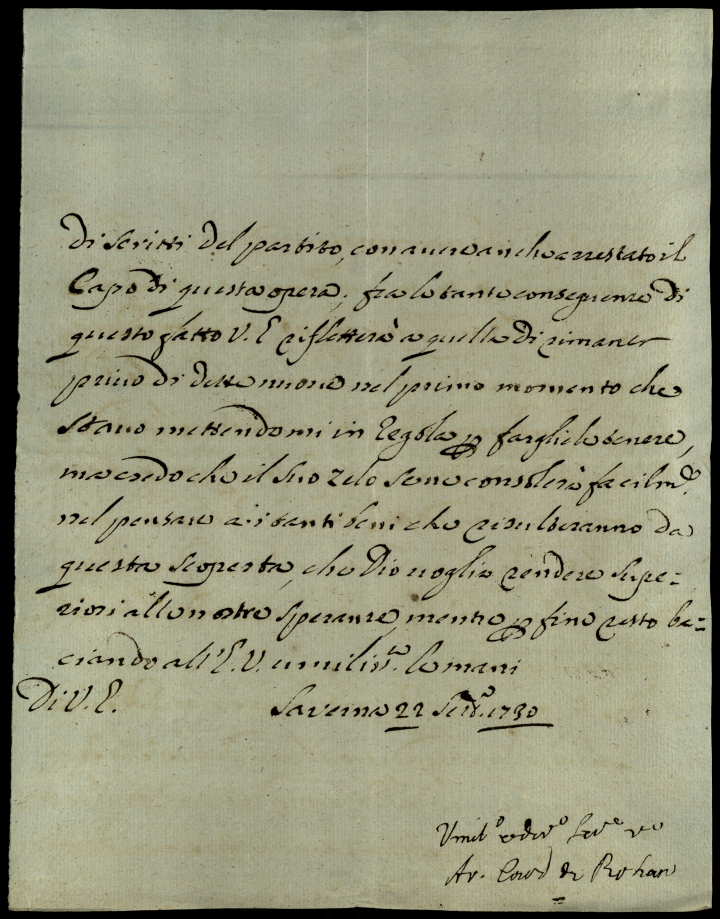 di scritti del partito, con avere anche arrestato il
Capo di questa opera; fra le tante conseguenze di
questo fatto V. E rifletterà a quella di rimaner
privo di dette nuove nel primo momento che
stavo mettendomi in regola p fargliele tenere,
ma credo che il suo zelo se ne consolerà facilm.e
nel pensare a i tanti beni che risulteranno da
questa scoperta, che Dio voglia rendere supe=
riori alle nostre speranze, mentre p fine resto ba=
ciando all' E. V. umilis.te le mani
Di V. E. Saverna 22 Set.o 1730
Umil.o e dev.o Ser.e vo
Ar. Card de Rohan